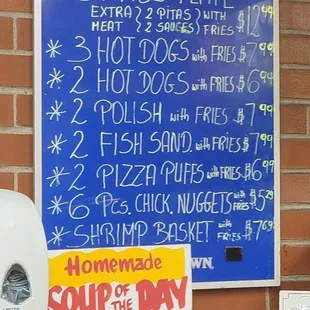 EXTRA (2 PITAS) WITH
MEAT (2 SAUCES) FRIES $12.99
* 3 HOT DOGS with FRIES $7.99
* 2 HOT DOGS with FRIES $6.94
* 2 POLISH with FRIES $7.99
* 2 FISH SAND. with FRIES $7.99
* 2 PIZZA PUFFS with FRIES $6.99
* 6 Pcs. CHICK. NUGGETS with FRIES $5.29
* SHRIMP BASKET with FRIES $7.69
Homemade
SOUP OF THE DAY